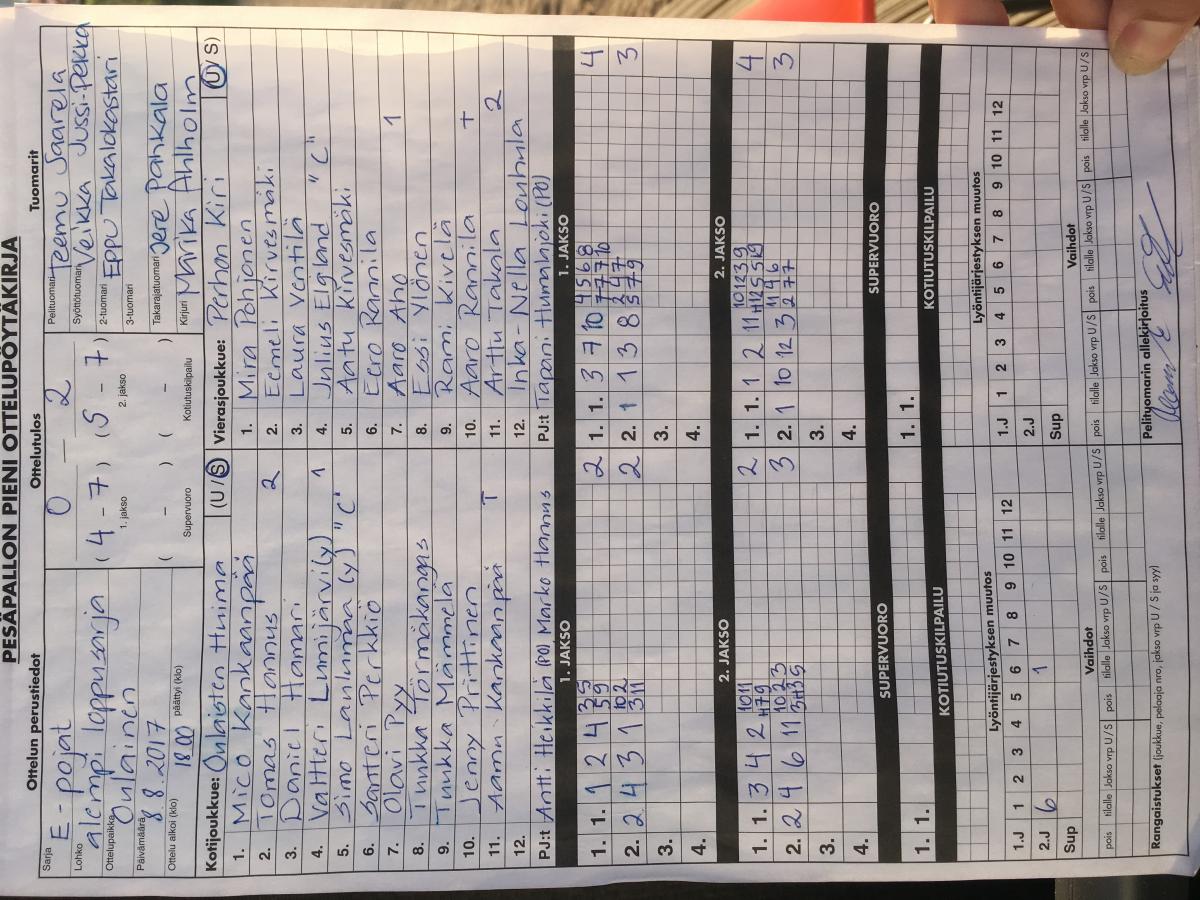 PESÄPALLON PIENI OTTELUPÖYTÄKIRJA
Ottelun perustiedot
Sarja E-pojat
Lohko alempi loppusarja
Ottelupaikka Oulainen
Päivämäärä 8.8.2017
Ottelu alkoi (klo) 18.00 päättyi (klo)
Ottelutulos
0 – 2
(4 – 7) (5 – 7)
1. jakso 2. jakso
( – ) ( – )
Supervuoro Kotiutuskilpailu
Tuomarit
Pelituomari Teemu Saarela
Syöttötuomari Veikka Jussi-Pekka
2-tuomari Eppu Takalokastari
3-tuomari
Takarajatuomari Jere Pahkala
Kirjuri Marika Ahlholm
Kotijoukkue: Oulaisten Huima (U / S)
1. Mico Kankaanpää
2. Tomas Hannus 2
3. Daniel Hamari
4. Valtteri Lumijärvi(y) 1
5. Simo Laulumaa (y) "C"
6. Santteri Perkkiö
7. Olavi Pyy
8. Tuukka Törmäkangas
9. Tuukka Mämmelä
10. Jenny Prittinen
11. Aamu Kankaanpää T
12.
PJ:t Antti Heikkilä (PO) Marko Hannus
Vierasjoukkue: Perhon Kiri (U / S)
1. Mira Pohjonen
2. Eemeli Kirvesmäki
3. Laura Ventilä
4. Julius England "C"
5. Aatu Kirvesmäki
6. Eero Rannila
7. Aaro Aho 1
8. Essi Ylönen
9. Rami Kivelä
10. Aaro Rannila +
11. Arttu Takala 2
12. Inka-Nella Louhula
PJ:t Tapani Humalajoki (PO)
1. JAKSO
1. 1. 1 2 4 2
2. 4 3 1 2
3.
4.
1. JAKSO
1. 1. 3 7 10 4
2. 1 1 3 8 3
3.
4.
2. JAKSO
1. 1. 3 4 2 2
2. 4 6 11 3
3.
4.
2. JAKSO
1. 1. 1 2 11 4
2. 1 10 12 3 3
3.
4.
SUPERVUORO
1. 1.
SUPERVUORO
1. 1.
KOTIUTUSKILPAILU
KOTIUTUSKILPAILU
Lyöntijärjestyksen muutos
1 2 3 4 5 6 7 8 9 10 11 12
1.J
2.J 6 1
Sup
Lyöntijärjestyksen muutos
1 2 3 4 5 6 7 8 9 10 11 12
1.J
2.J
Sup
Vaihdot
pois tilalle Jakso vrp U / S pois tilalle Jakso vrp U / S pois tilalle Jakso vrp U / S
Vaihdot
pois tilalle Jakso vrp U / S pois tilalle Jakso vrp U / S pois tilalle Jakso vrp U / S
Rangaistukset (joukkue, pelaaja nro, jakso vrp U / S ja syy)
Pelituomarin allekirjoitus